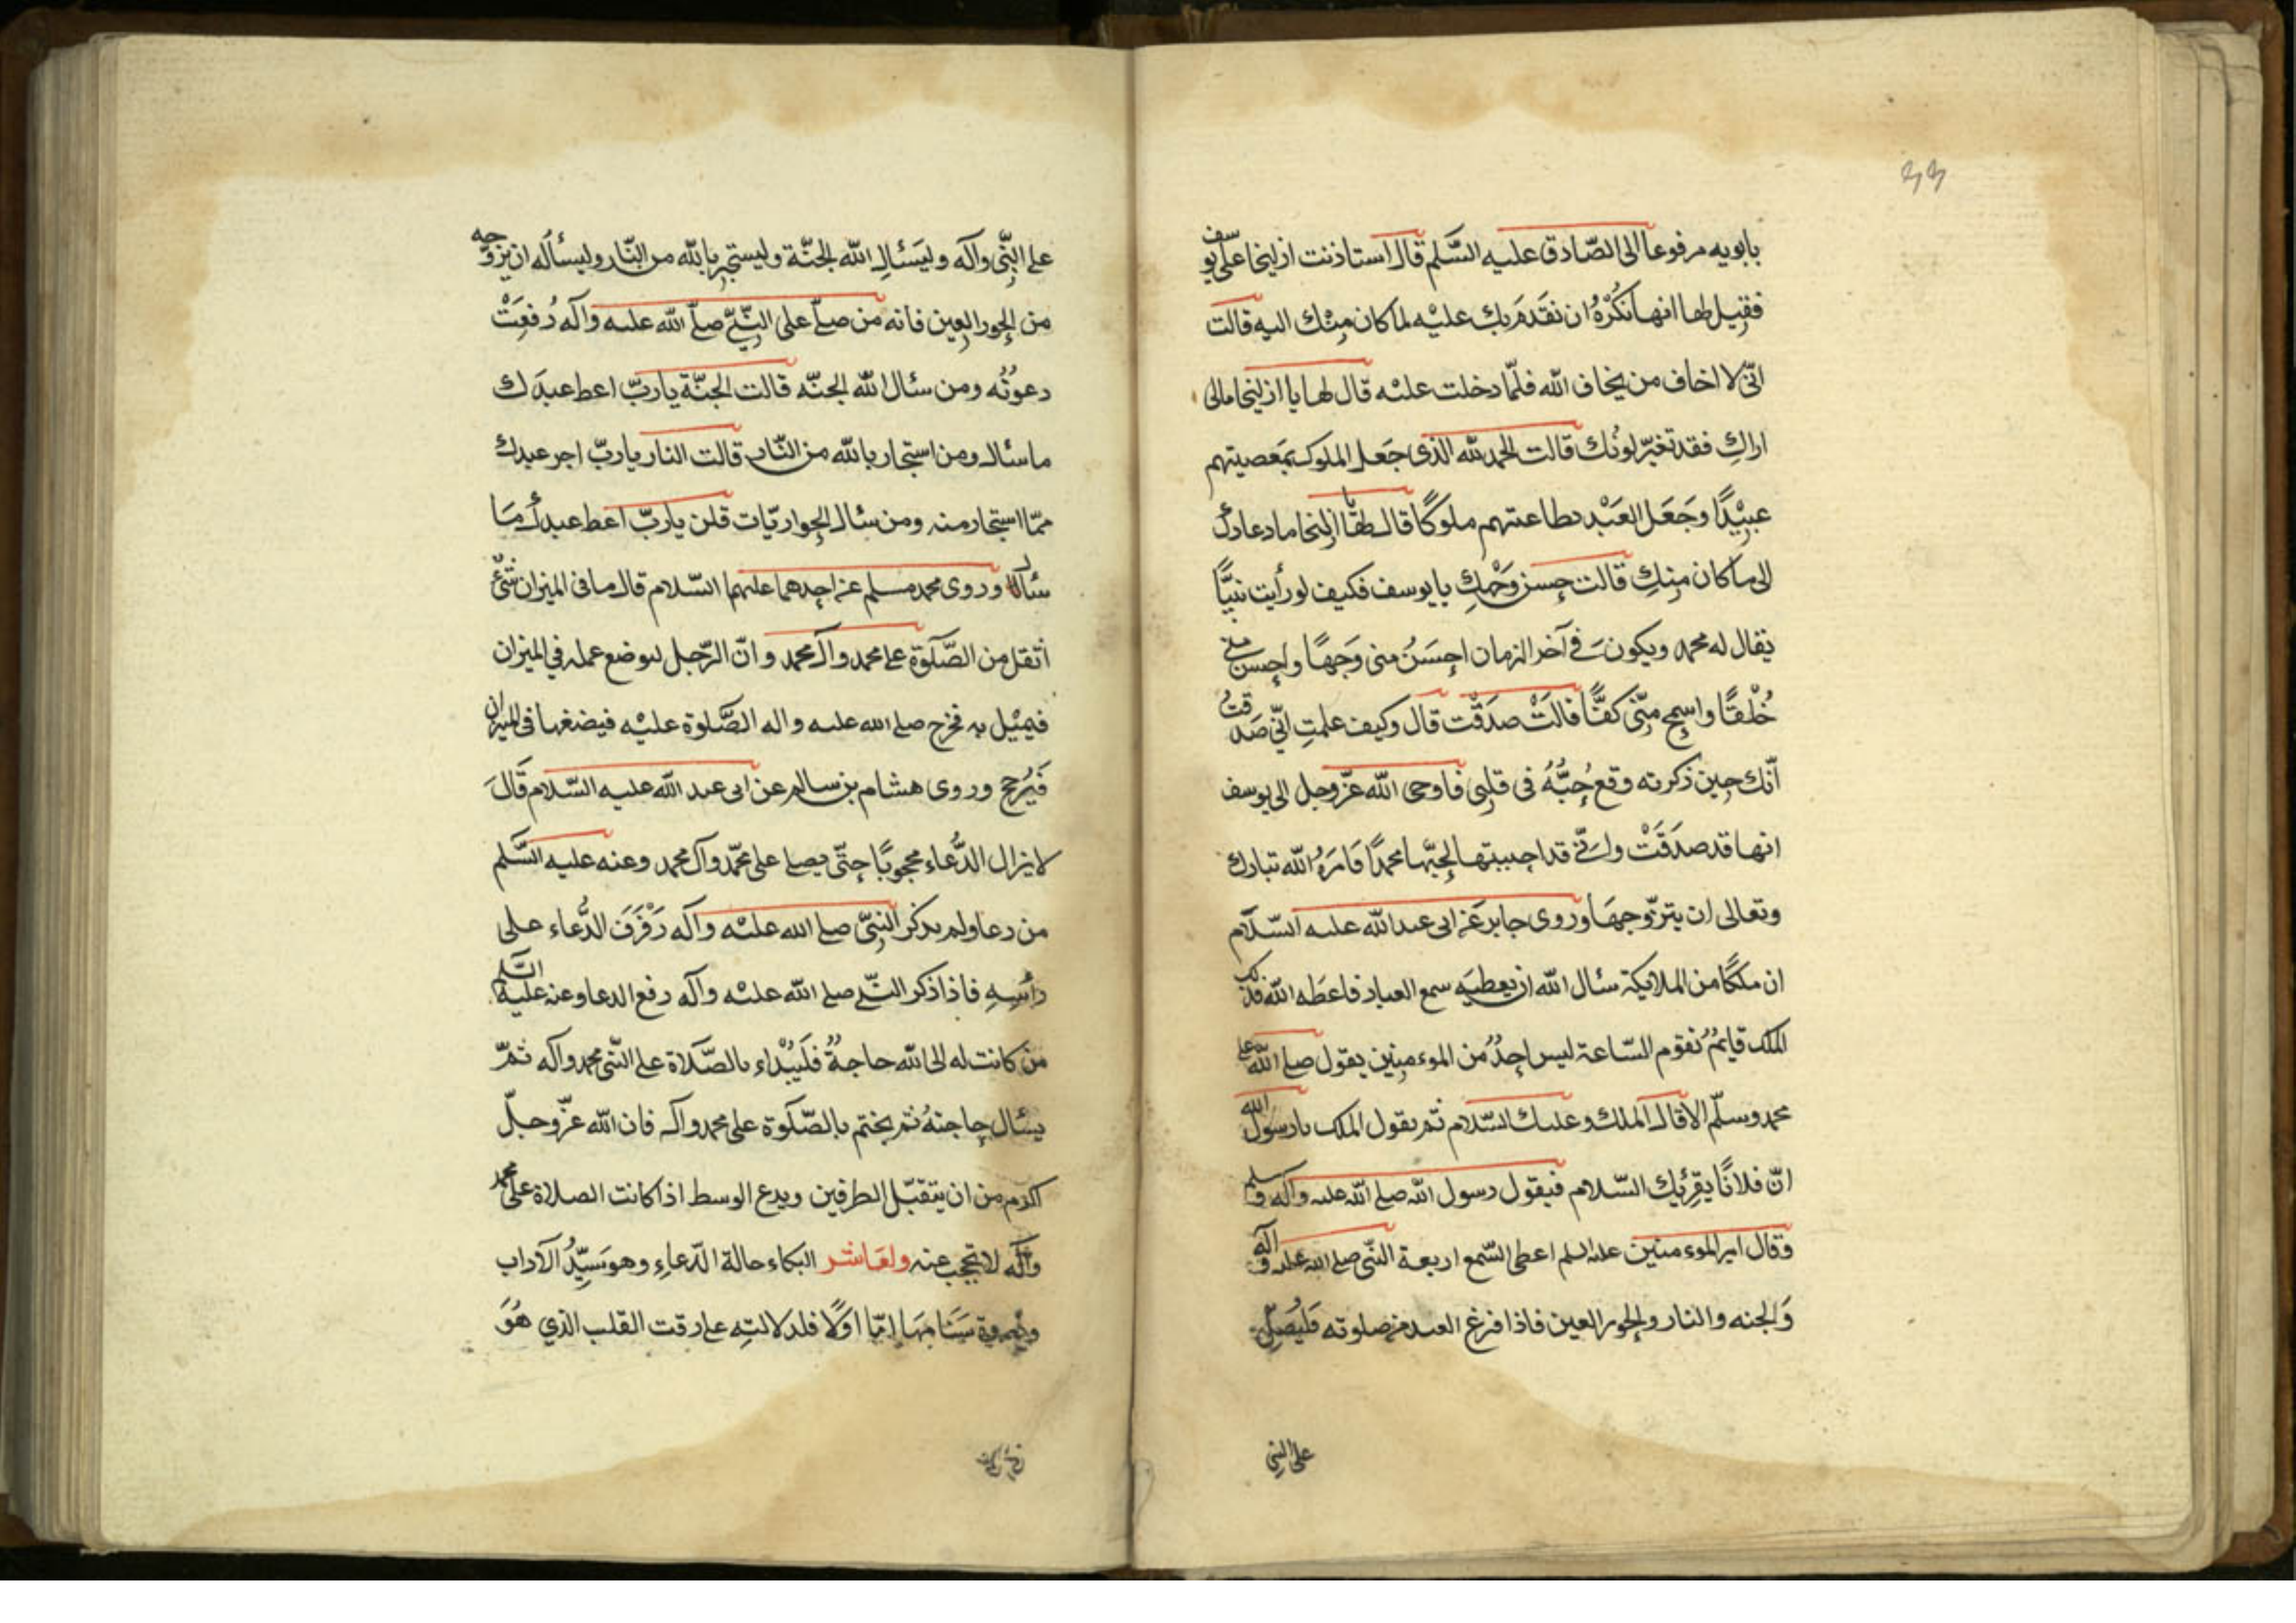 بابويه مرفوعا الى الصّادق عليه السّلم قال استاذنت ازليخا على يوسف
فقيل لها انها نكره ان نقدم بك عليه لما كان منك اليه قالت
انّى لا اخاف من يخاف الله فلمّا دخلت عليه قال لها يا ازليخا مالى
اراكِ قد تغيّر لونك قالت الحمد لله الذى جَعَل الملوك بمَعصيتهم
عبيْدًا وجَعَل العَبْد بطاعتهم ملوكًا قال لها يا ازليخا ما دعاك
الى ما كان مِنكِ قالت حسن وَجْهكِ يا يوسف فكيف لو رأيت نبيًّا
يقال له محمد ويكون فى آخر الزمان احسَنُ منى وَجهًا واحسن منى
خُلْقًا واسمح منّى كفًّا قالَتْ صدَقْت قال وكيف علمتِ انّى صَدقتُ
انّك حين ذكرته وقع حُبّهُ فى قلبى فاوحى الله عزّ وجل الى يوسف
انها قد صدَقَتْ وانّى قد احببتها لحبّها محمدًا فامَرَهُ الله تبارك
وتعالى ان يتزوّجهَا وروى جابر عَن ابى عبد الله عليه السّلام
ان ملكًا من الملايكة سئال الله ان يعطيَه سمع العباد فاعطَه الله فذلك
الملك قايمٌ تقوم السّاعة ليس احدٌ من الموءمنين يقول صلى الله على
محمد وسلّم الا قال الملك وعليك السّلام ثم يقول الملك يا رسول الله
انّ فلانًا يقرِئك السّلام فيقول رسول الله صلى الله عليه وآله و سلم
وقال امير الموءمنين عليه السلم اعطى السّمع اربعة النّبى صلى الله عليه و آله
وَالجنه والنار والحور العين فاذا فرغ العبد من صلوته فليُصلّ
على النبى
على النبّى وآله وليَسَئالِ الله الجنّة وليستجِر بالله من النّار وليسأله ان يزوّجه
من الحور العين فانه من صلّى على النّبىّ صلّى الله عليه وآله رُفعَتْ
دعوتُه ومن سئال الله الجنّه قالت الجنّة يا ربّ اعط عبدَك
ما سئال ومن استجار بالله من النّار قالت النار يا ربّ اجر عبدك
ممّا استجار منه ومن سئال الحور قلن يا ربّ اعط عبدك مَا
سئال وروى محمد مسلم عن احدهما عليهما السّلام قال ما فى الميزان شئ
اثقل من الصّلوة على محمد وآل محمد وانّ الرّجل ليوضع عمله في الميزان
فيميْل به فيخرج صلى الله عليه واله الصّلوة عليْه فيضعها فى الميزان
فَيُرجح وروى هشام بن سالم عن ابى عبد الله عليه السّلام قَالَ
لا يزال الدُّعاء محجوبًا حتّى يصلى على محمّد وآل محمد وعنه عليه السَّلم
من دعا ولم يذكر النبىّ صلى الله عليه وآله رَفْرَفَ الدُّعاء على
رأسِهِ فاذا ذكر النّبى صلى الله عليْه وآله رفع الدعا وعنه عليه السّلم
من كانت له الى الله حاجةٌ فلَيبْداء بالصّلاة على النّبى محمد وآله ثمّ
يسئال حاجتهُ ثم يختم بالصّلوة على محمد وآله فان الله عزّ وجلّ
اكرم من ان يتقبّل الطرفين ويدع الوسط اذا كانت الصلاة على محمد
وآله لا تحجب عنه والعَاشر البكاء حالة الدّعاءِ وهو سَيِّدُ الآداب
وذروة سَنَامهَا امّا اوّلًا فلدلالتِه على رقت القلب الذي هُوَ